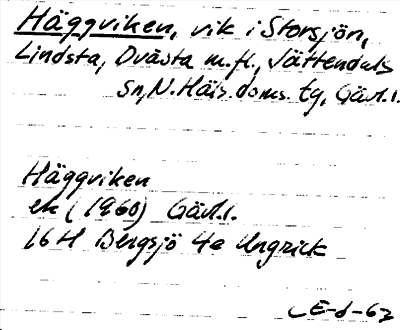 Häggviken, vik i Storsjön,
Lindsta, Ovästa m.fl., Jättendals
sn, N. Häls. doms. tg, Gävl.l.
Häggviken
ek (1960) Gävl.l.
16H Bergsjö 4e
CE-d-63